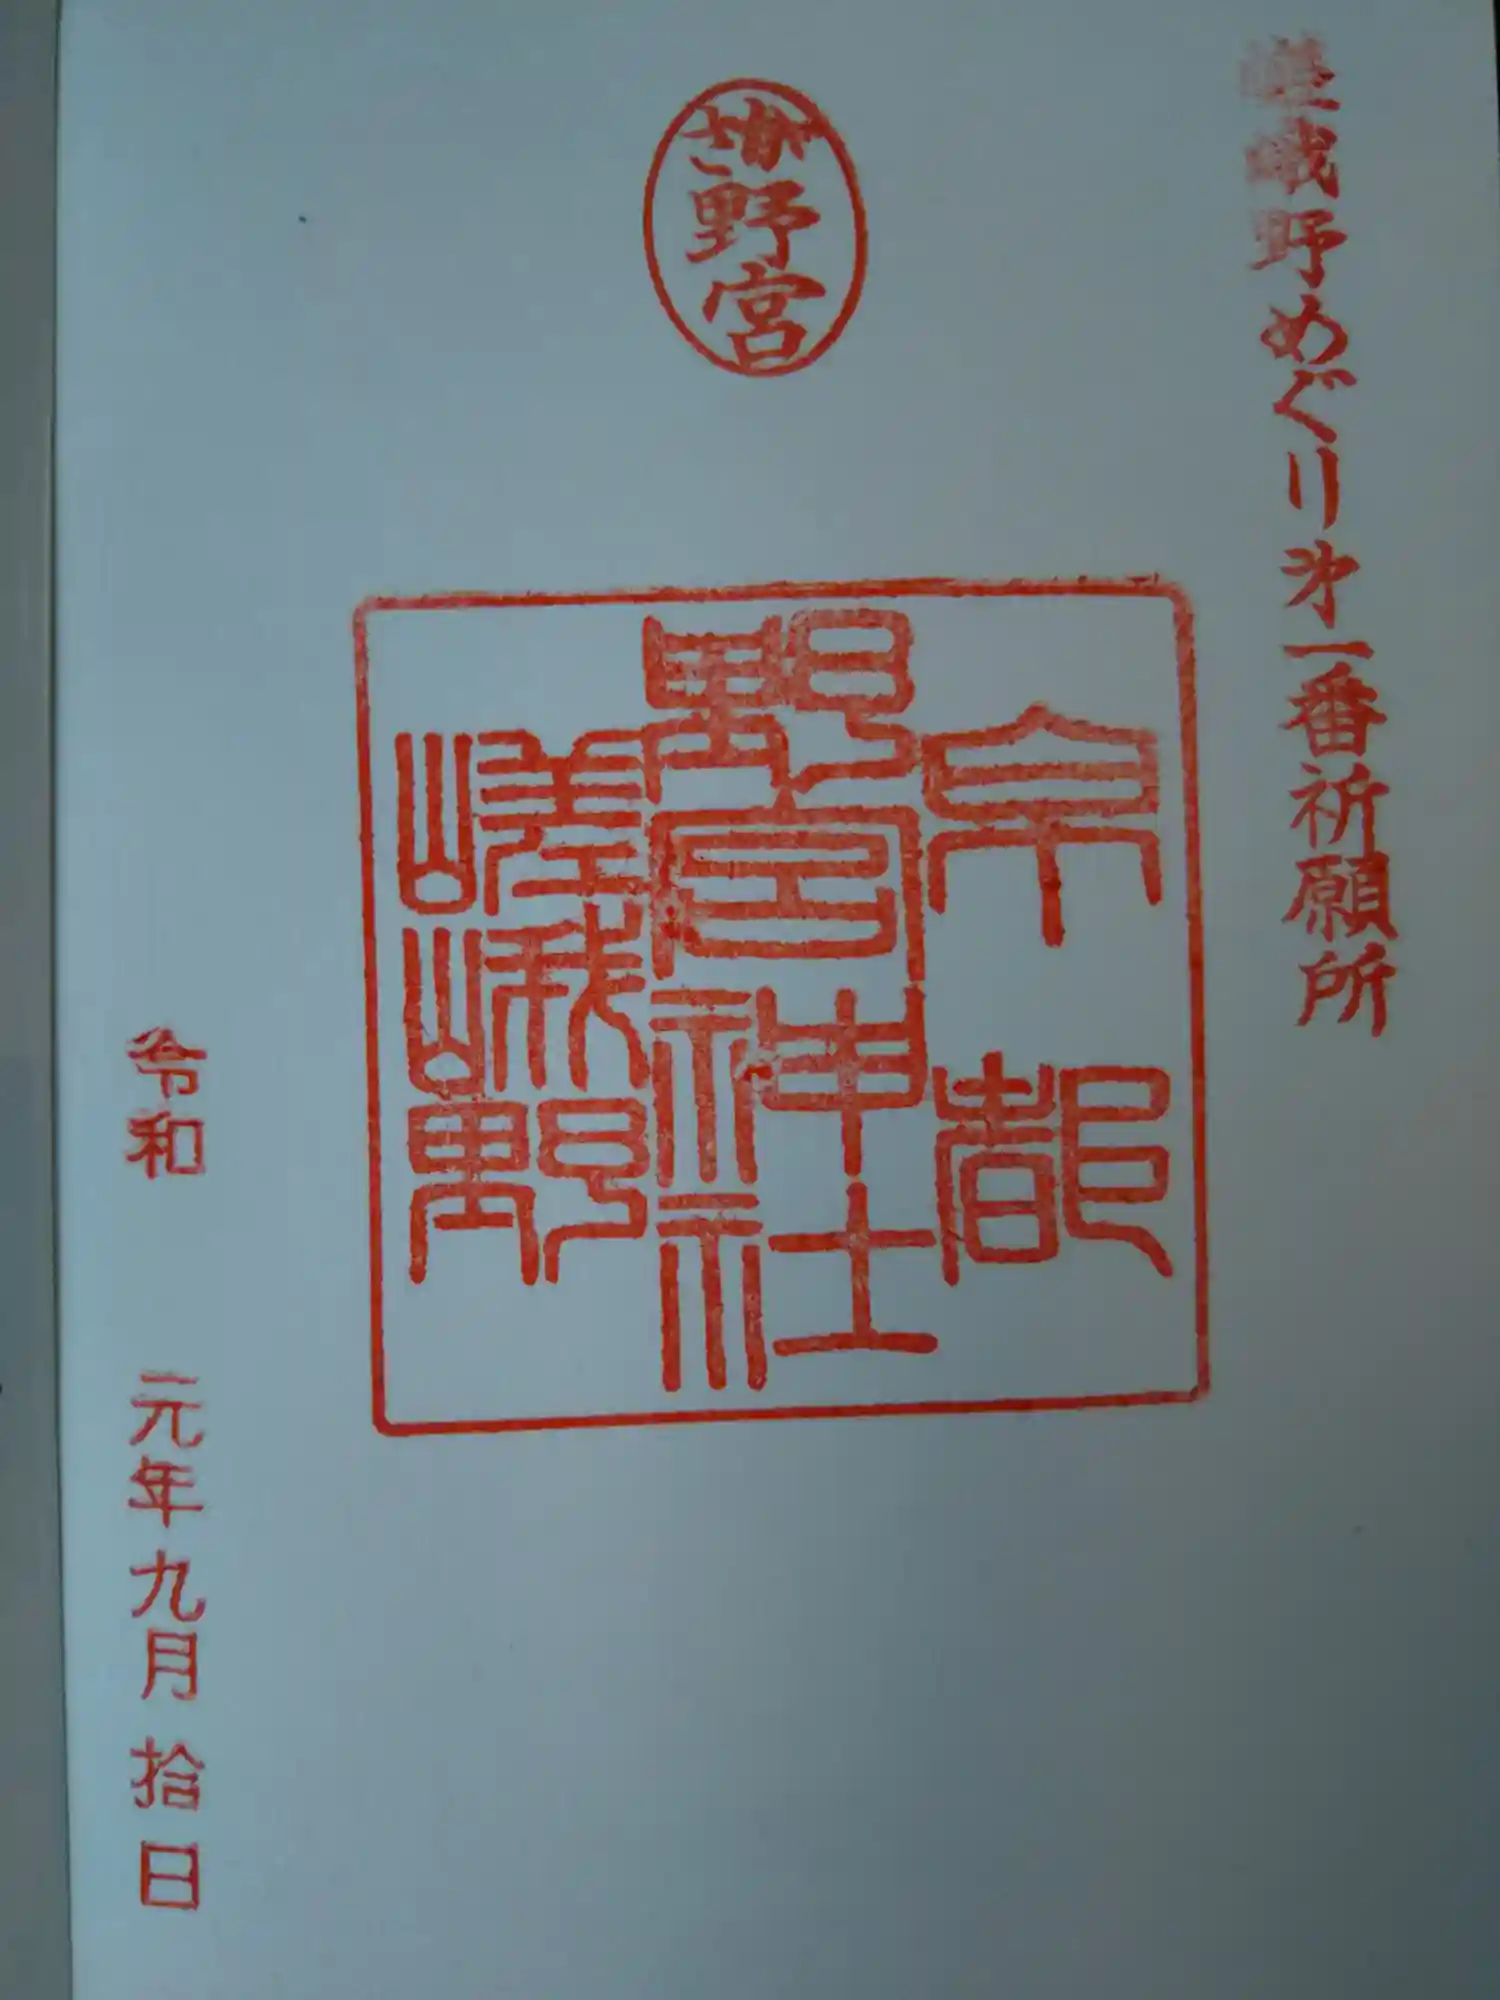 嵯峨野めぐり㐧一番祈願所
さが
野宮
京都
野宮神社
嵯峨野
令和 元年九月拾日